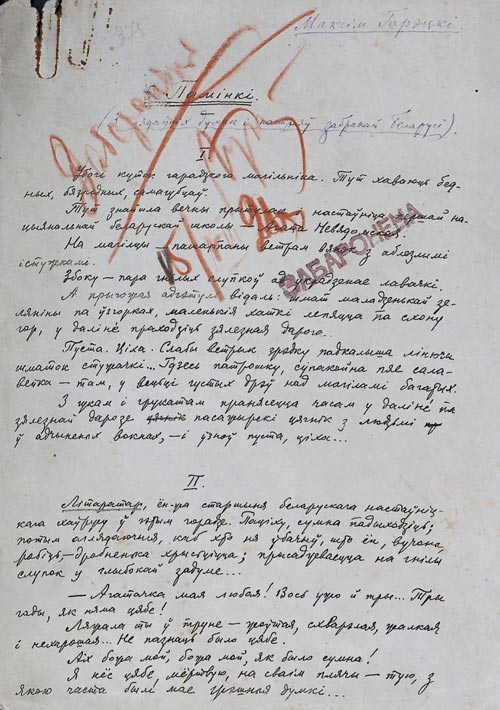 375
Максім Гарэцкі.
Памінкі.
(З нядаўніх дум і настрояў забранай Беларусі).
I
Убогі куток гарадзкога магільніка. Тут хаваюць бед-
ных, бязродных, самагубцаў.
Тут знайшла вечны прытулак і настаўніца першай на-
цыянальнай беларускай школы — Агата Невядомская.
На магілцы — пашарпаны ветрам вянок з аблезлымі
істужкамі.
Збоку — пара гнілых слупкоў ад украдзенае лавачкі.
А прыгожая адгэтуль відаль: шмат маладзенькай зе-
ляніны па ўзгорках, маленькія хаткі лепяцца па схону
гор, у даліне праходзіць зялезная дарога.
Пуста. Ціха. Слабы ветрык зрэдку падкалыша лінючы
шматок стужачкі... Гдзесь патрошку, супакойна пяе сала-
вейка — там, у вецьці густых дрэў над магіламі багатых.
З шумам і грукатам пранясецца часам у даліне па
зялезнай дарозе пасажырскі цягнік з людзьмі
ў адчыненых вокнах, — і ўзноў пуста, ціха...
ЗАБАРОНЕНА
II.
Літаратар, ён-ра старшыня беларускага настаўніц-
кага хаўрусу ў гэтым горадзе. Паціху, сумна падыходзіць;
потым аглядаючыся, каб хто ня ўбачыў, што ён, вучоны,
робіць — дробненька хрысьціцца; прысаджваецца на гнілы
слупок у глыбокай задуме...
— Агатачка мая любая! Вось ужо й тры... Тры
гады, як няма цябе!
Ляжала ты ў труне — жоўтая, схварэлая, жалкая
і нехарошая... Не пазнаць было цябе.
Ах божа мой, божа мой, як было сумна!
Я нёс цябе, мёртвую, на сваім плячы — тую, з
якою часта былі мае грэшныя думкі...